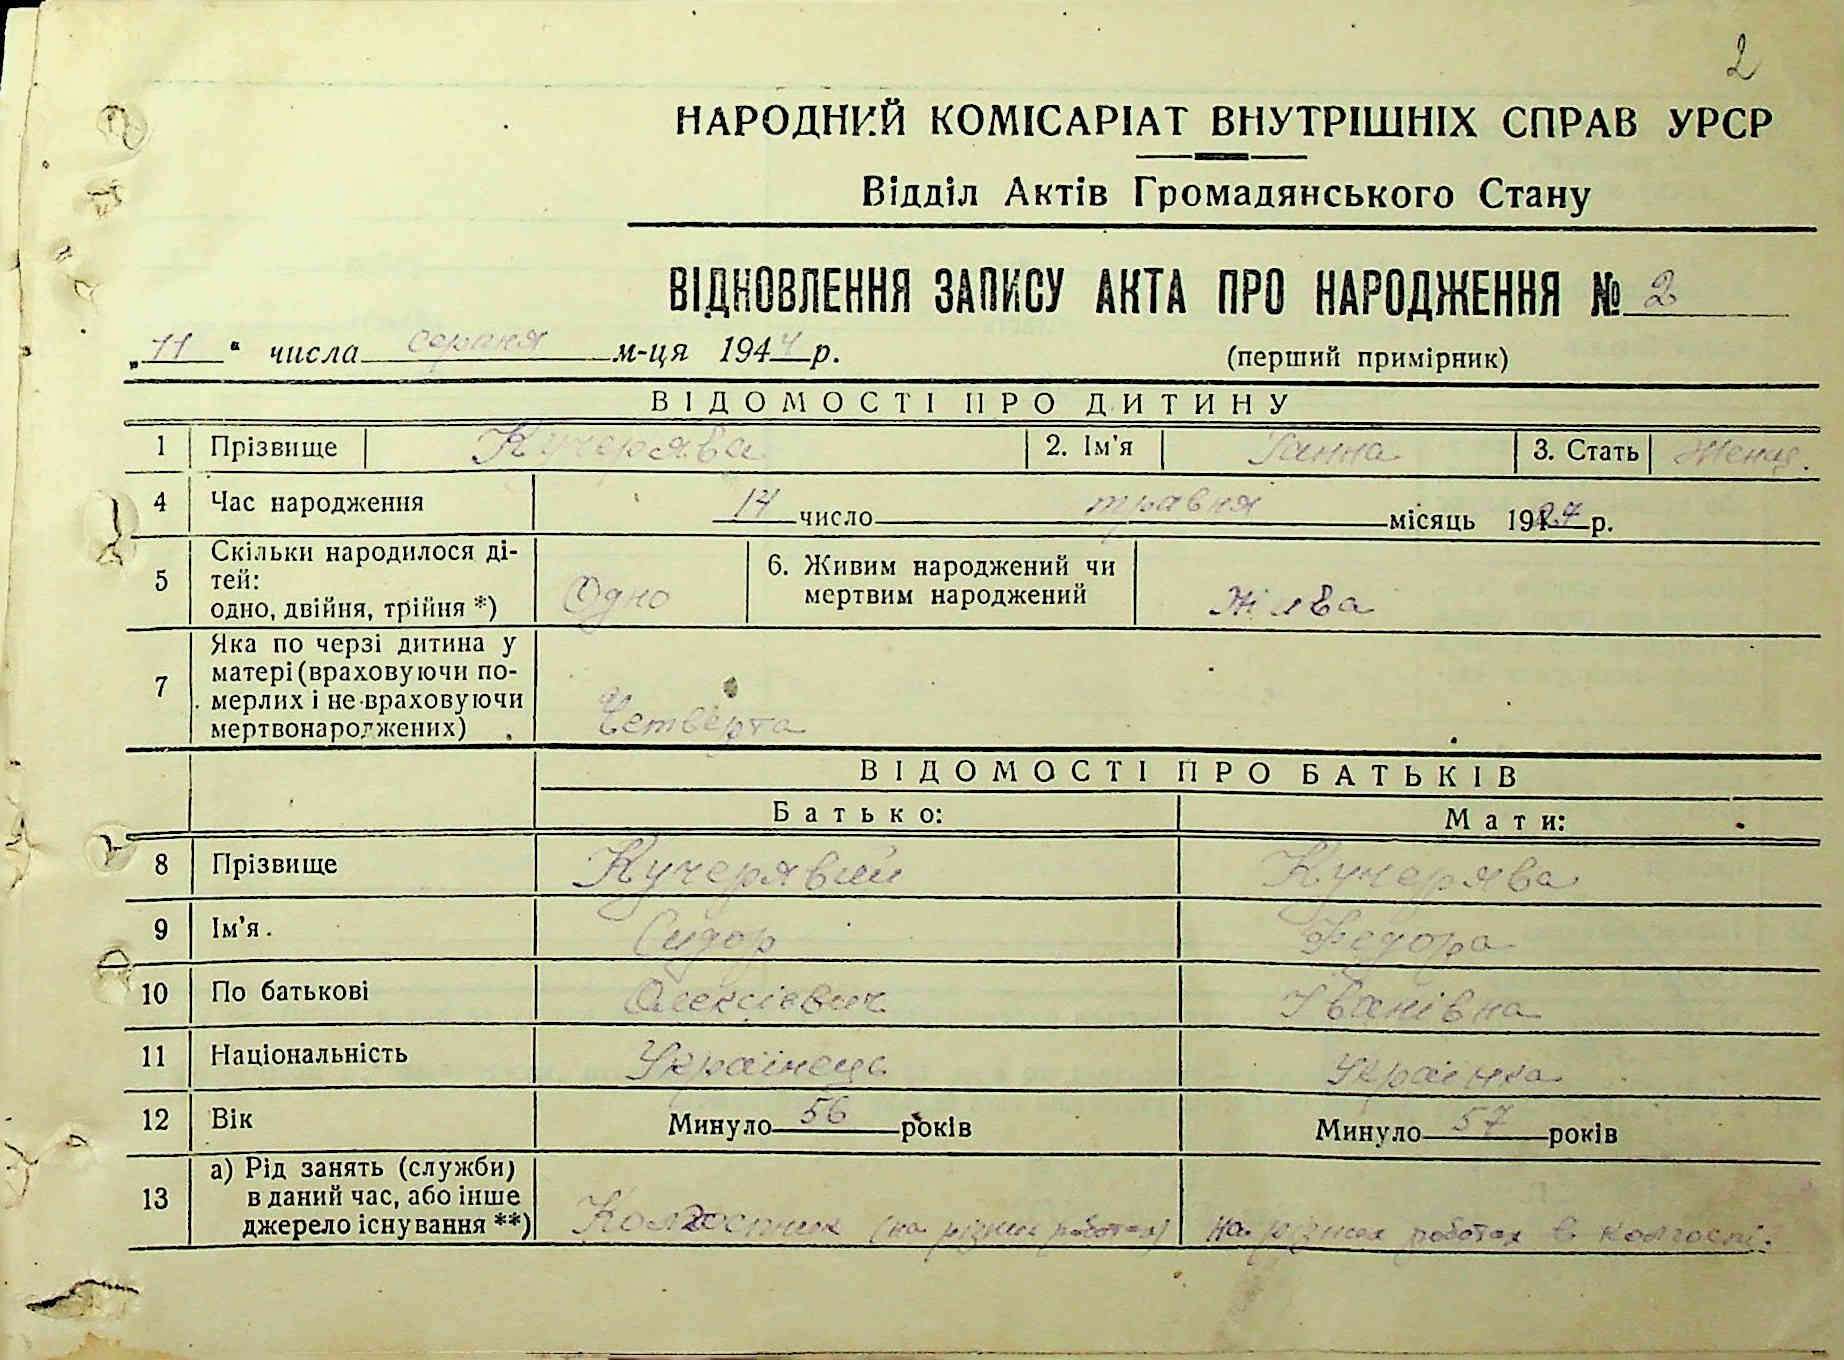 2
НАРОДНИЙ КОМІСАРІАТ ВНУТРІШНІХ СПРАВ УРСР
Відділ Актів Громадянського Стану
ВІДНОВЛЕННЯ ЗАПИСУ АКТА ПРО НАРОДЖЕННЯ № 2
„ 11 “ числа серпня м-ця 1944 р. (перший примірник)
ВІДОМОСТІ ПРО ДИТИНУ
1 Прізвище Кучерява 2. Ім'я Ганна 3. Стать Жіноч.
4 Час народження 14 число травня місяць 1927 р.
5 Скільки народилося ді-
тей:
одно, двійня, трійня *) Одно 6. Живим народжений чи
мертвим народжений Жива
7 Яка по черзі дитина у
матері (враховуючи по-
мерлих і не враховуючи
мертвонароджених) Четверта
ВІДОМОСТІ ПРО БАТЬКІВ
Батько: Мати:
8 Прізвище Кучерявий Кучерява
9 Ім'я. Сидор Федора
10 По батькові Олексієвич Іванівна
11 Національність Українець Українка
12 Вік Минуло 56 років Минуло 57 років
13 а) Рід занять (служби)
в даний час, або інше
джерело існування **) Колгоспник (на різних роботах) На різних роботах в колгоспі.